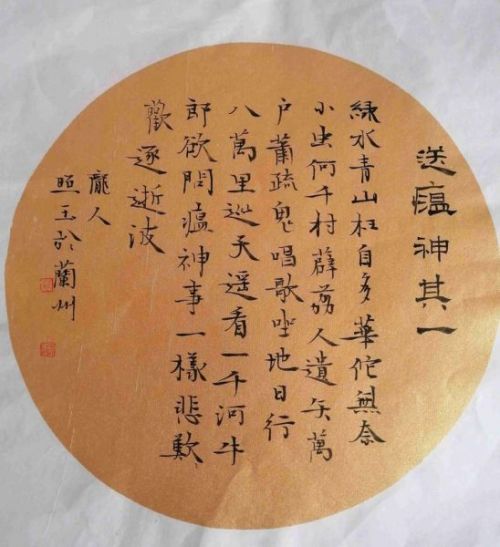 送瘟神其一
綠水青山枉自多華佗無奈
小虫何千村薜荔人遺矢萬
户蕭疏鬼唱歌坐地日行
八萬里巡天遥看一千河牛
郎欲問瘟神事一樣悲歎
歡逐逝波
人
照玉於蘭州